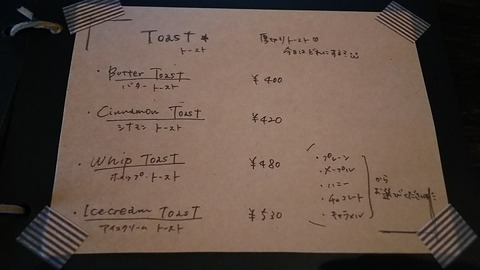 Toast *
トースト
厚切りトースト
今日はどれにする?
・Butter Toast ¥400
バタートースト
・Cinnamon Toast ¥420
シナモン トースト
・Whip Toast ¥480
ホイップ・トースト
・Icecream Toast ¥530
アイスクリーム トースト
・プレーン
・メープル
・ハニー
・チョコレート
・キャラメル
から
お選びください